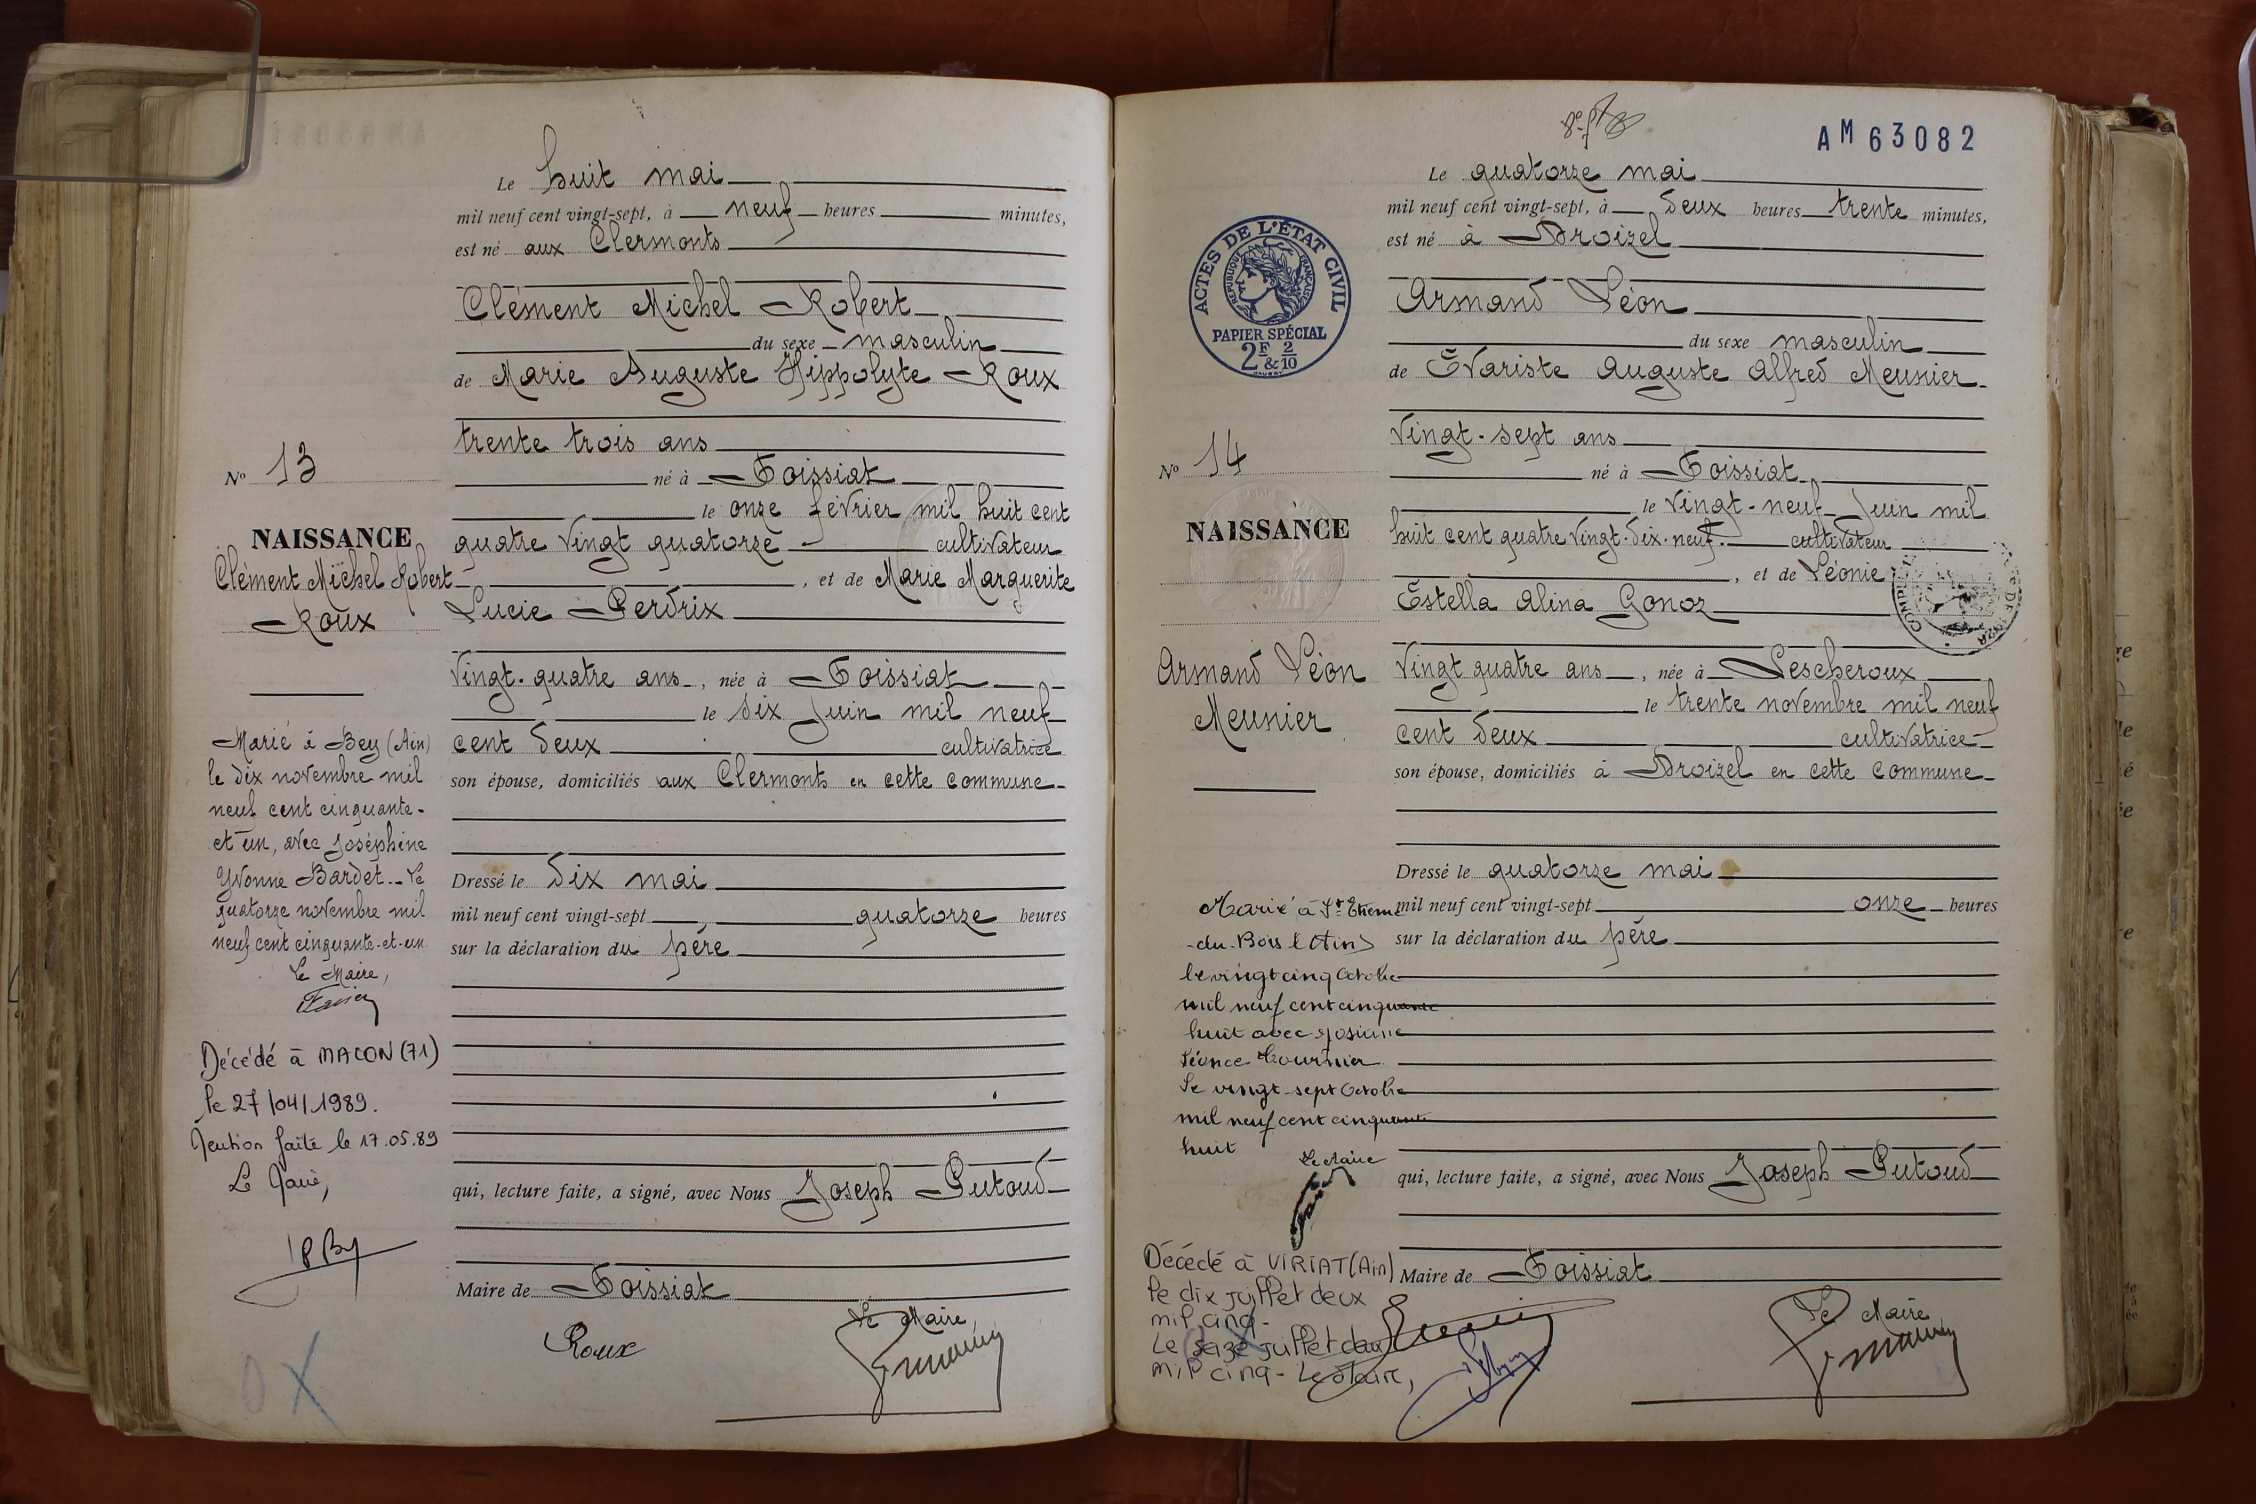 Le huit mai
mil neuf cent vingt-sept, à neuf heures minutes,
est né aux Clermonts
Clément Michel Robert
du sexe masculin
de Marie Auguste Hippolyte Roux
trente trois ans
né à Foissiat
le onze février mil huit cent
quatre vingt quatorze cultivateur
, et de Marie Marguerite
Lucie Perdrix
vingt-quatre ans, née à Foissiat
le six juin mil neuf
cent deux cultivatrice
son épouse, domiciliés aux Clermonts en cette commune
Dressé le dix mai
mil neuf cent vingt-sept quatorze heures
sur la déclaration du père
qui, lecture faite, a signé, avec Nous Joseph Putoud
Maire de Foissiat
Le Maire
Roux
N° 13
NAISSANCE
Clément Michel Robert
Roux
Marié à Bey (Ain)
le dix novembre mil
neuf cent cinquante-
et un, avec Joséphine
Yvonne Bardet. Le
quatorze novembre mil
neuf cent cinquante-et-un
Le Maire,
Décédé à MACON (71)
le 27/04/1989.
Mention faite le 17.05.89
Le Maire,
AM 63082
Le quatorze mai
mil neuf cent vingt-sept, à deux heures trente minutes,
est né à Droizel
Armand Léon
du sexe masculin
de Evariste Auguste Alfred Meunier
vingt-sept ans
né à Foissiat
le vingt-neuf juin mil
huit cent quatre vingt-dix-neuf cultivateur
, et de Léonie
Estella Alina Gonoz
vingt quatre ans, née à Lescheroux
le trente novembre mil neuf
cent deux cultivatrice
son épouse, domiciliés à Droizel en cette commune
Dressé le quatorze mai
mil neuf cent vingt-sept onze heures
sur la déclaration du père
qui, lecture faite, a signé, avec Nous Joseph Putoud
Maire de Foissiat
Le Maire
ACTES DE L'ÉTAT CIVIL
RÉPUBLIQUE FRANÇAISE
PAPIER SPÉCIAL
2F & 2/10
N° 14
NAISSANCE
Armand Léon
Meunier
Marié à St Etienne
-du-Bois (Ain)
le vingt cinq octobre
mil neuf cent cinquante
huit avec Josiane
Léonce Tournier
Le vingt-sept octobre
mil neuf cent cinquante
huit
Le Maire
Décédé à VIRIAT (Ain)
le dix juillet deux
mil cinq-
Le seize juillet deux
mil cinq- Le Maire,